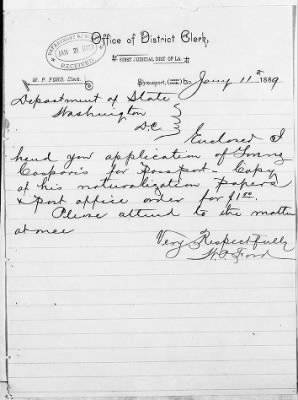 Office of District Clerk,
FIRST JUDICIAL DIST OF LA.
DEPARTMENT OF STATE
JAN 21 1889
RECEIVED
W. F. FORD, Clerk.
Shreveport, La. Jany 11th 1889
Department of State
Washington
D.C.
Enclosed I
hend you application of
for passport - Copy
of his naturalization papers
& post office order for $1.00.
Please attend to the matter
at once
Very Respectfully
W. F. Ford